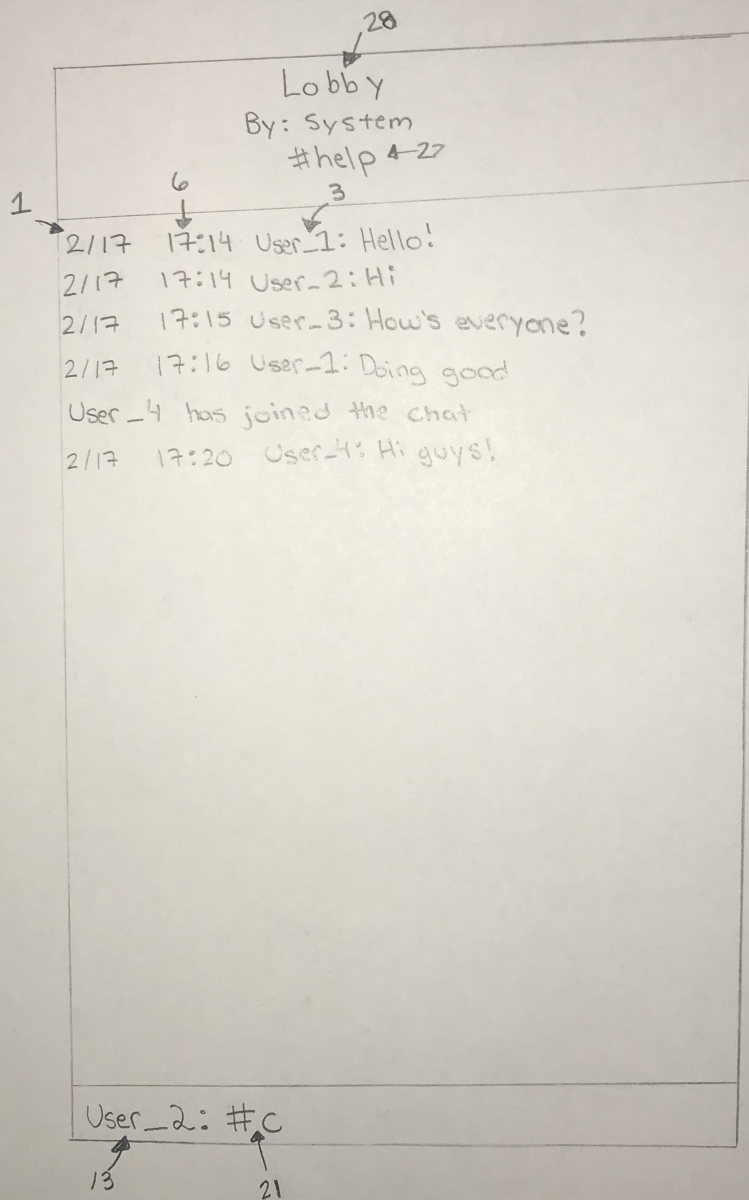 28
Lobby
By: System
#help 27
6
1
3
2/17 17:14 User_1: Hello!
2/17 17:14 User_2: Hi
2/17 17:15 User_3: How's everyone?
2/17 17:16 User_1: Doing good
User_4 has joined the chat
2/17 17:20 User_4: Hi guys!
User_2: #c
13
21